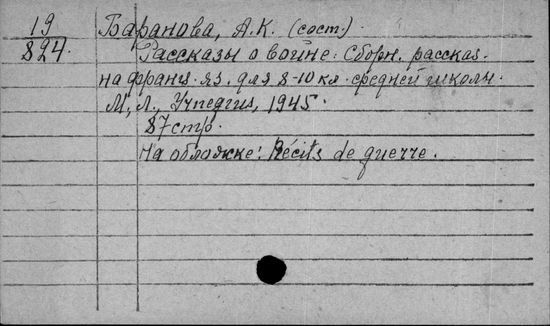 19
824.
Баранова, А.К. (сост.)
Рассказы о войне: Сборн. рассказ.
на франц. яз. для 8-10 кл. средней школы.
М, Л., Учпедгиз, 1945.
87 стр.
На обложке: Récits de guerre.